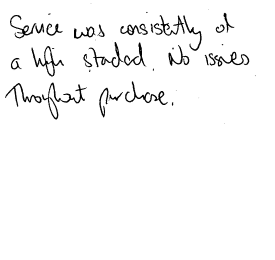 Service was consistently of
a high standard. No issues
throughout purchase.